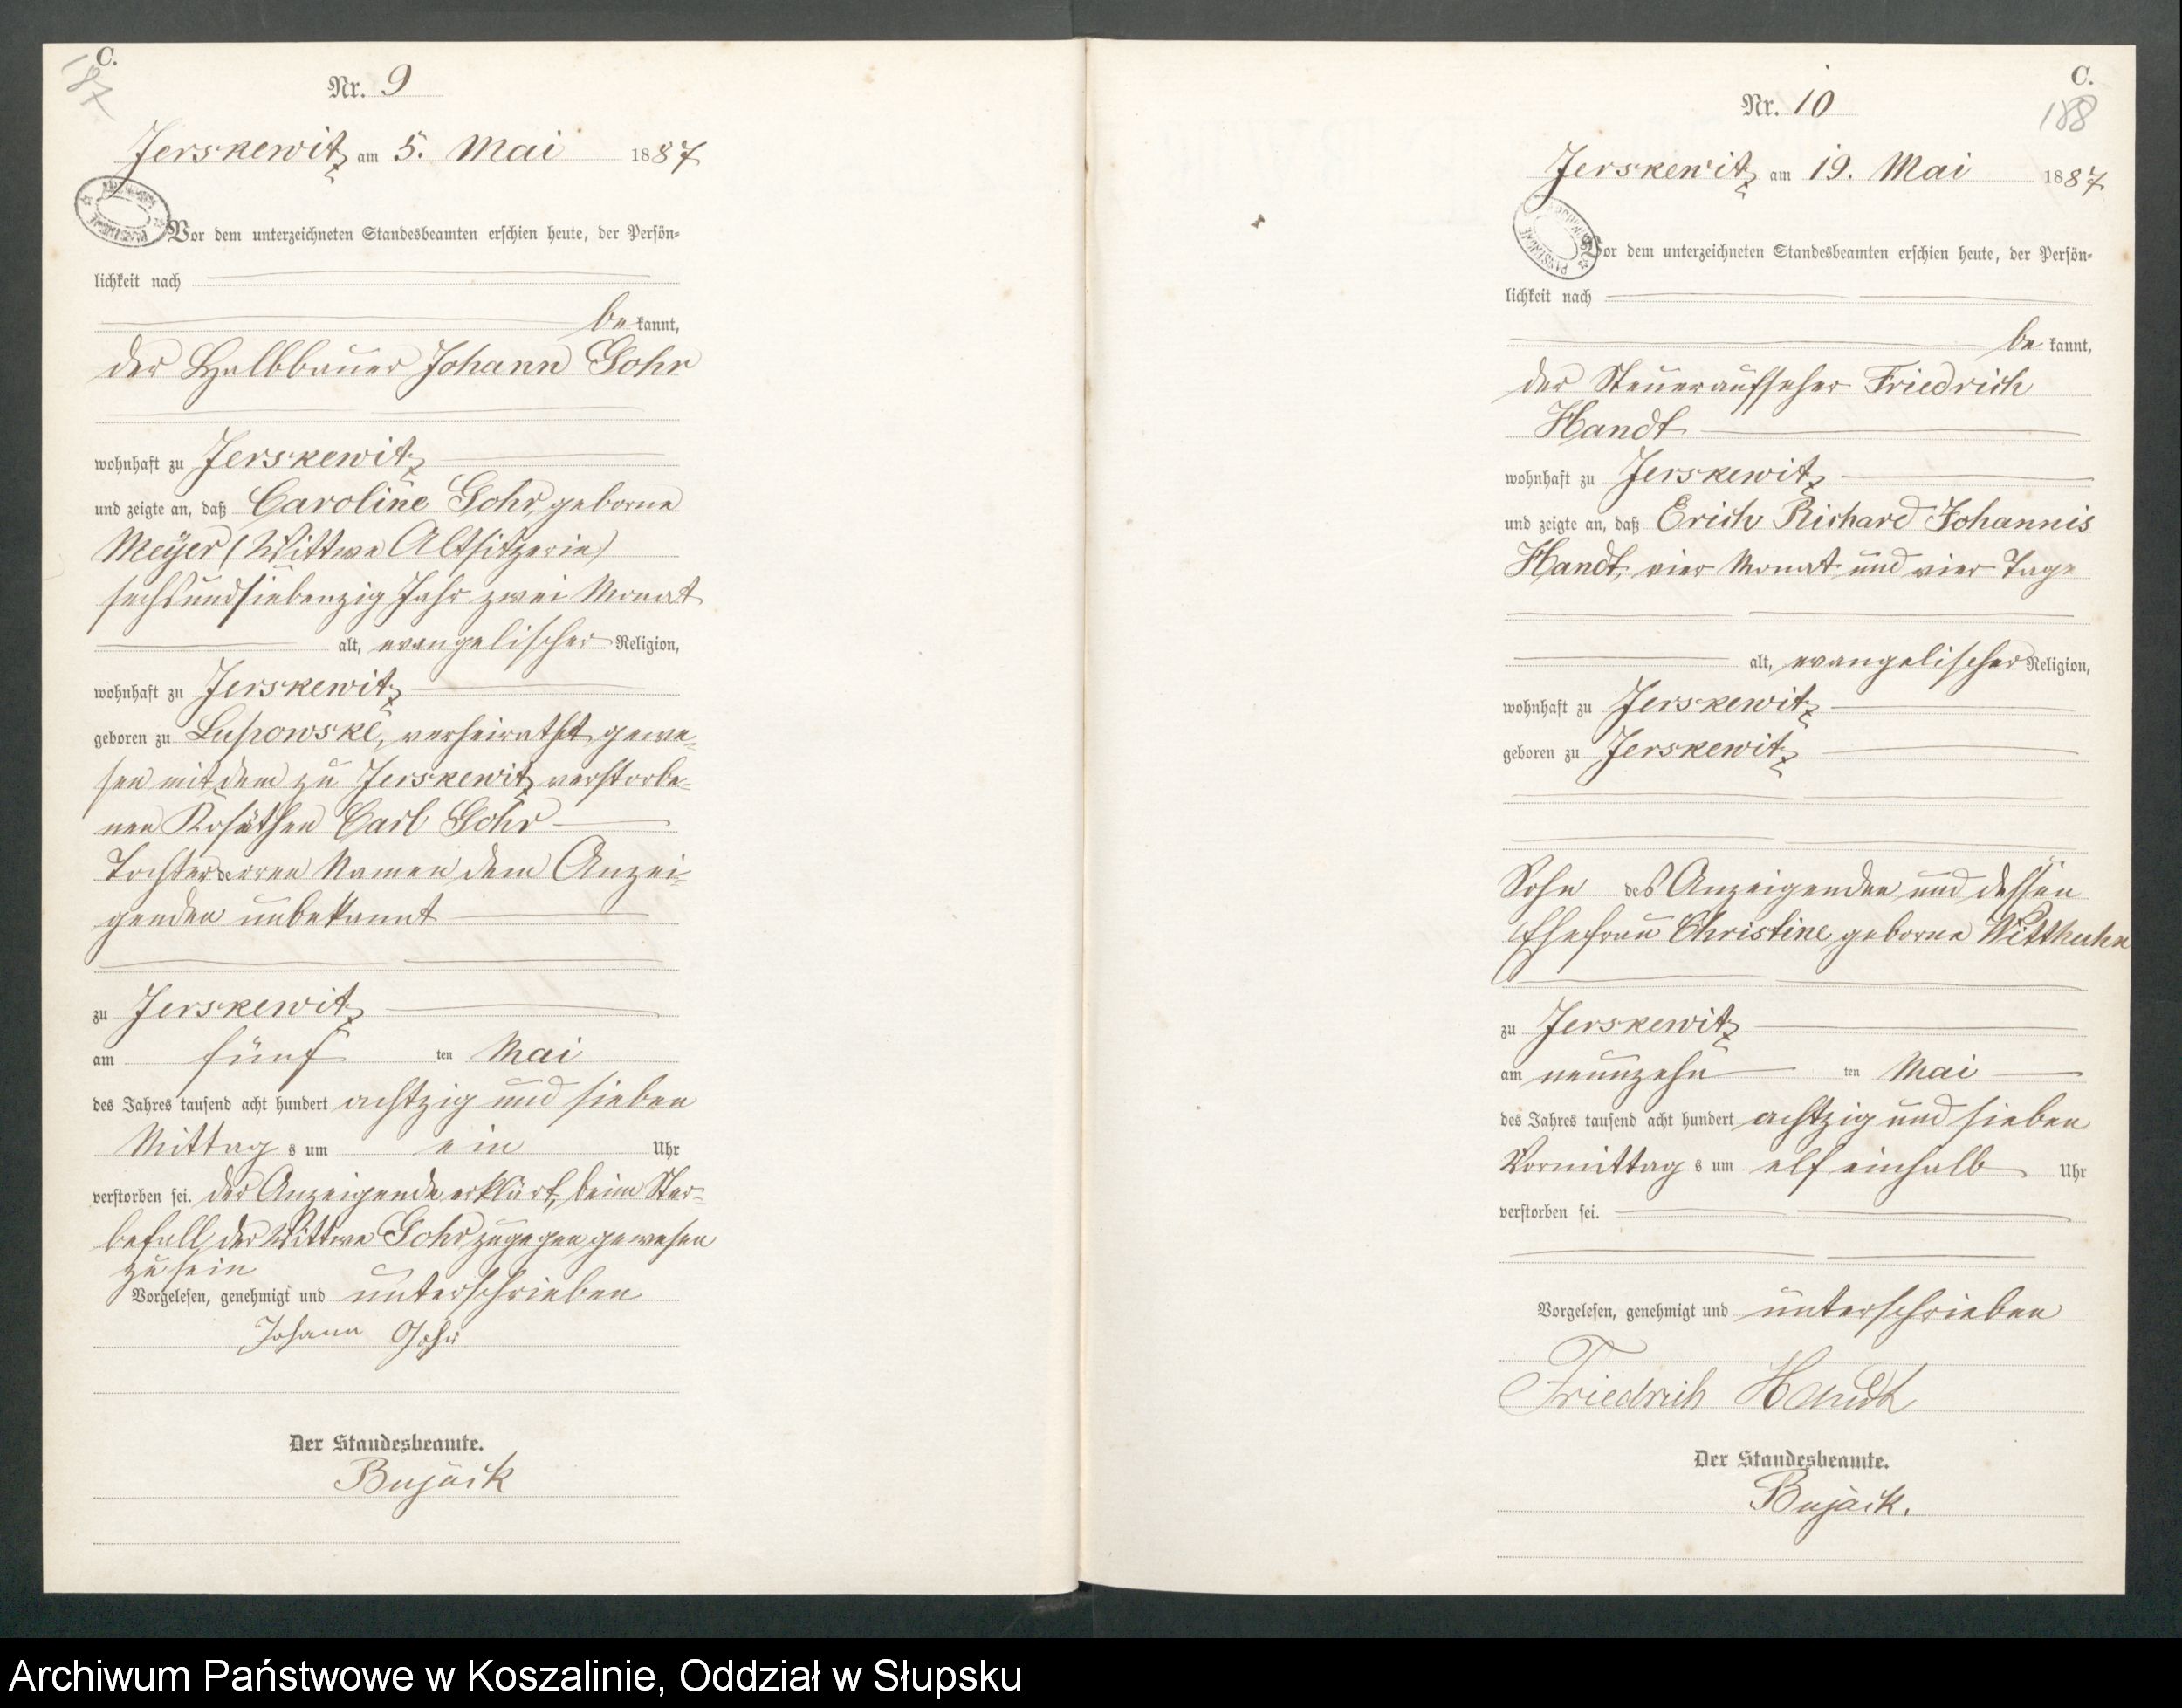 C.
187
Nr. 9
Jerskewitz am 5. Mai 1887
Vor dem unterzeichneten Standesbeamten erschien heute, der Persön-
lichkeit nach
be kannt,
der Halbbauer Johann Gohr
wohnhaft zu Jerskewitz
und zeigte an, daß Caroline Gohr, geborne
Meÿer (Wittwe Altsitzerin)
sechsundsiebenzig Jahr zwei Monat
alt, evangelischer Religion,
wohnhaft zu Jerskewitz
geboren zu Lupowske, verheirathet gewe-
sen mit dem zu Jerskewitz verstorbe-
nen Kosäthen Carl Gohr
Tochter der Namen dem Anzei-
genden unbekannt
zu Jerskewitz
am fünf ten Mai
des Jahres tausend acht hundert achtzig und sieben
Mittag s um ein Uhr
verstorben sei. der Anzeigende erklärt, beim Ster-
befall der Wittwe Gohr zugegen gewesen
zu sein
Vorgelesen, genehmigt und unterschrieben
Johann Gohr
Der Standesbeamte.
Bujack
C.
188
Nr. 10
Jerskewitz am 19. Mai 1887
Vor dem unterzeichneten Standesbeamten erschien heute, der Persön-
lichkeit nach
be kannt,
der Steueraufseher Friedrich
Handt
wohnhaft zu Jerskewitz
und zeigte an, daß Erich Richard Johannis
Handt, vier Monat und vier Tage
alt, evangelischer Religion,
wohnhaft zu Jerskewitz
geboren zu Jerskewitz
Sohn des Anzeigenden und dessen
Ehefrau Christine geborne Witthuhn
zu Jerskewitz
am neunzehn ten Mai
des Jahres tausend acht hundert achtzig und sieben
Vormittag s um elf einhalb Uhr
verstorben sei.
Vorgelesen, genehmigt und unterschrieben
Friedrich Handt
Der Standesbeamte.
Bujack.
Archiwum Państwowe w Koszalinie, Oddział w Słupsku